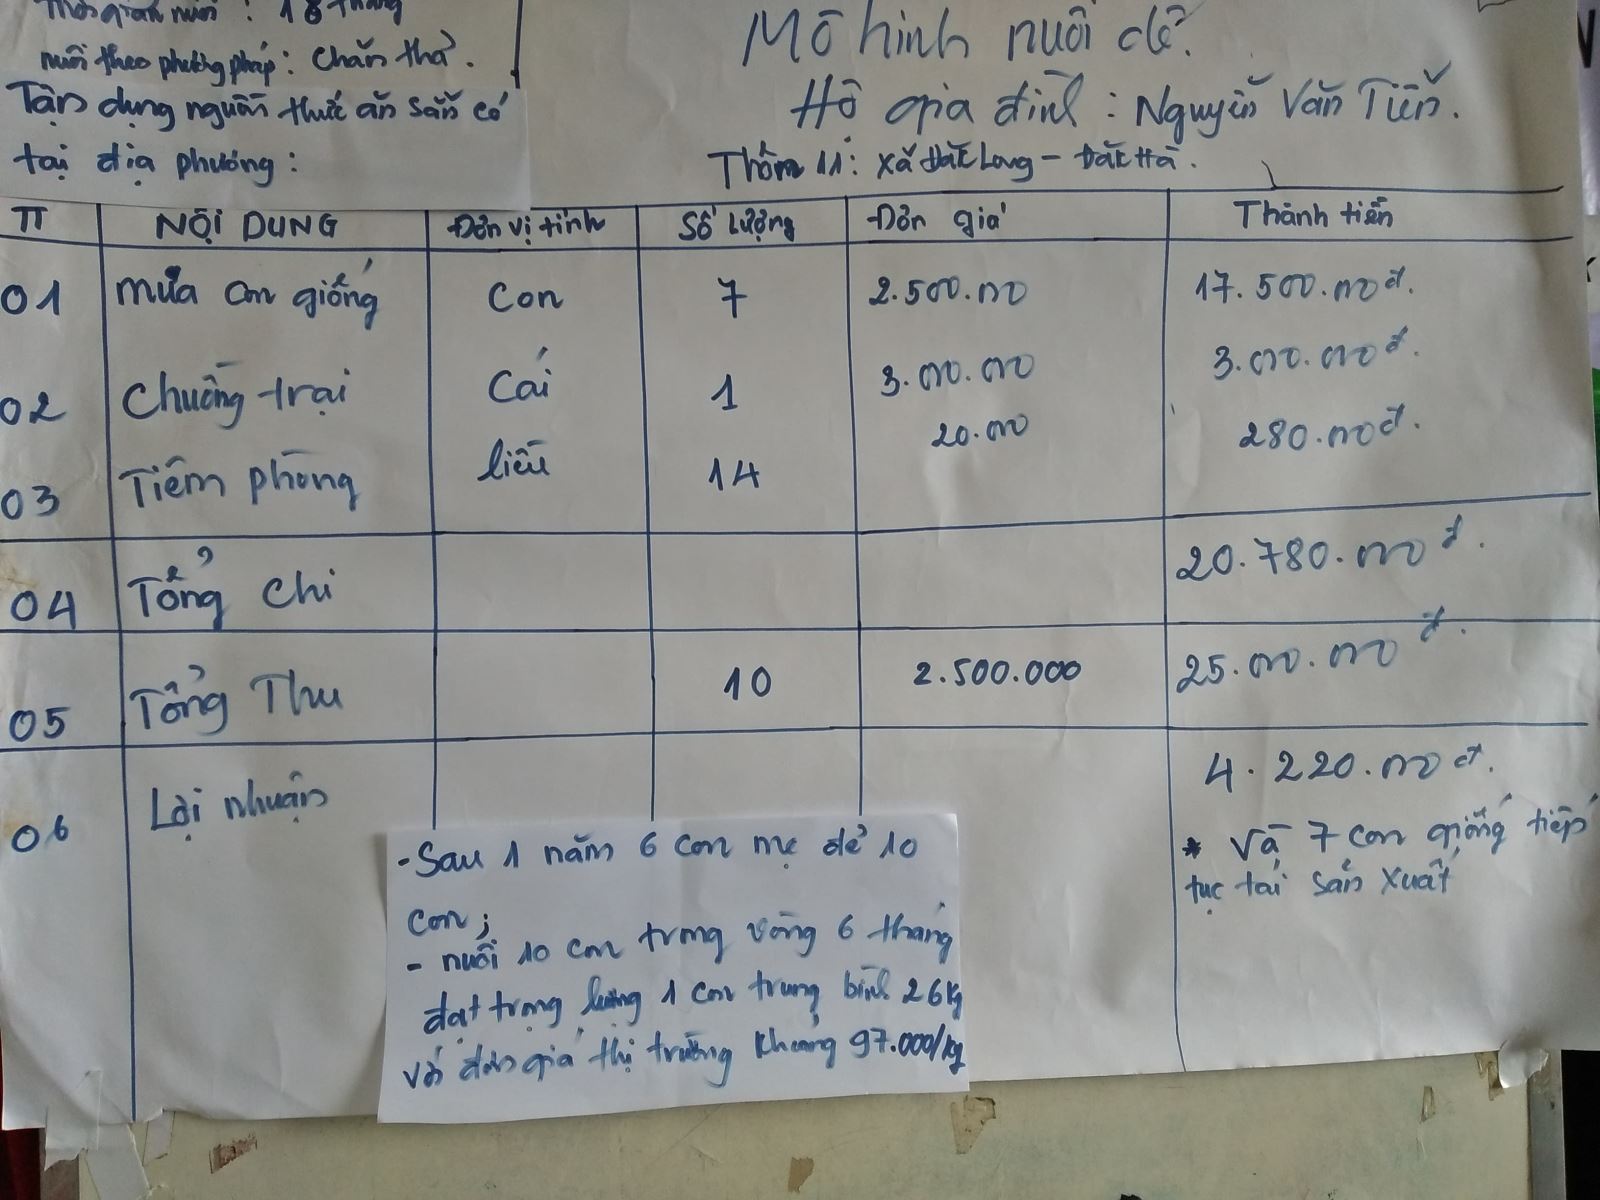 Thời gian nuôi : 18 tháng
nuôi theo phương pháp : Chăn thả.
Tận dụng nguồn thức ăn sẵn có
tại địa phương :
Mô hình nuôi dê.
Hộ gia đình : Nguyễn Văn Tiến.
Thôn 11 : xã Đăk Long – Đăk Hà.
TT NỘI DUNG Đơn vị tính Số lượng Đơn giá Thành tiền
01 mua con giống Con 7 2.500.000 17.500.000đ.
02 Chuồng trại Cái 1 3.000.000 3.000.000đ.
03 Tiêm phòng liều 14 20.000 280.000đ.
04 Tổng Chi 20.780.000đ.
05 Tổng Thu 10 2.500.000 25.000.000đ.
06 Lợi nhuận 4.220.000đ.
* Và 7 con giống tiếp
tục tái sản xuất
- Sau 1 năm 6 con mẹ đẻ 10
con ;
- nuôi 10 con trong vòng 6 tháng
đạt trọng lượng 1 con trung bình 26kg
với đơn giá thị trường khoảng 97.000/kg